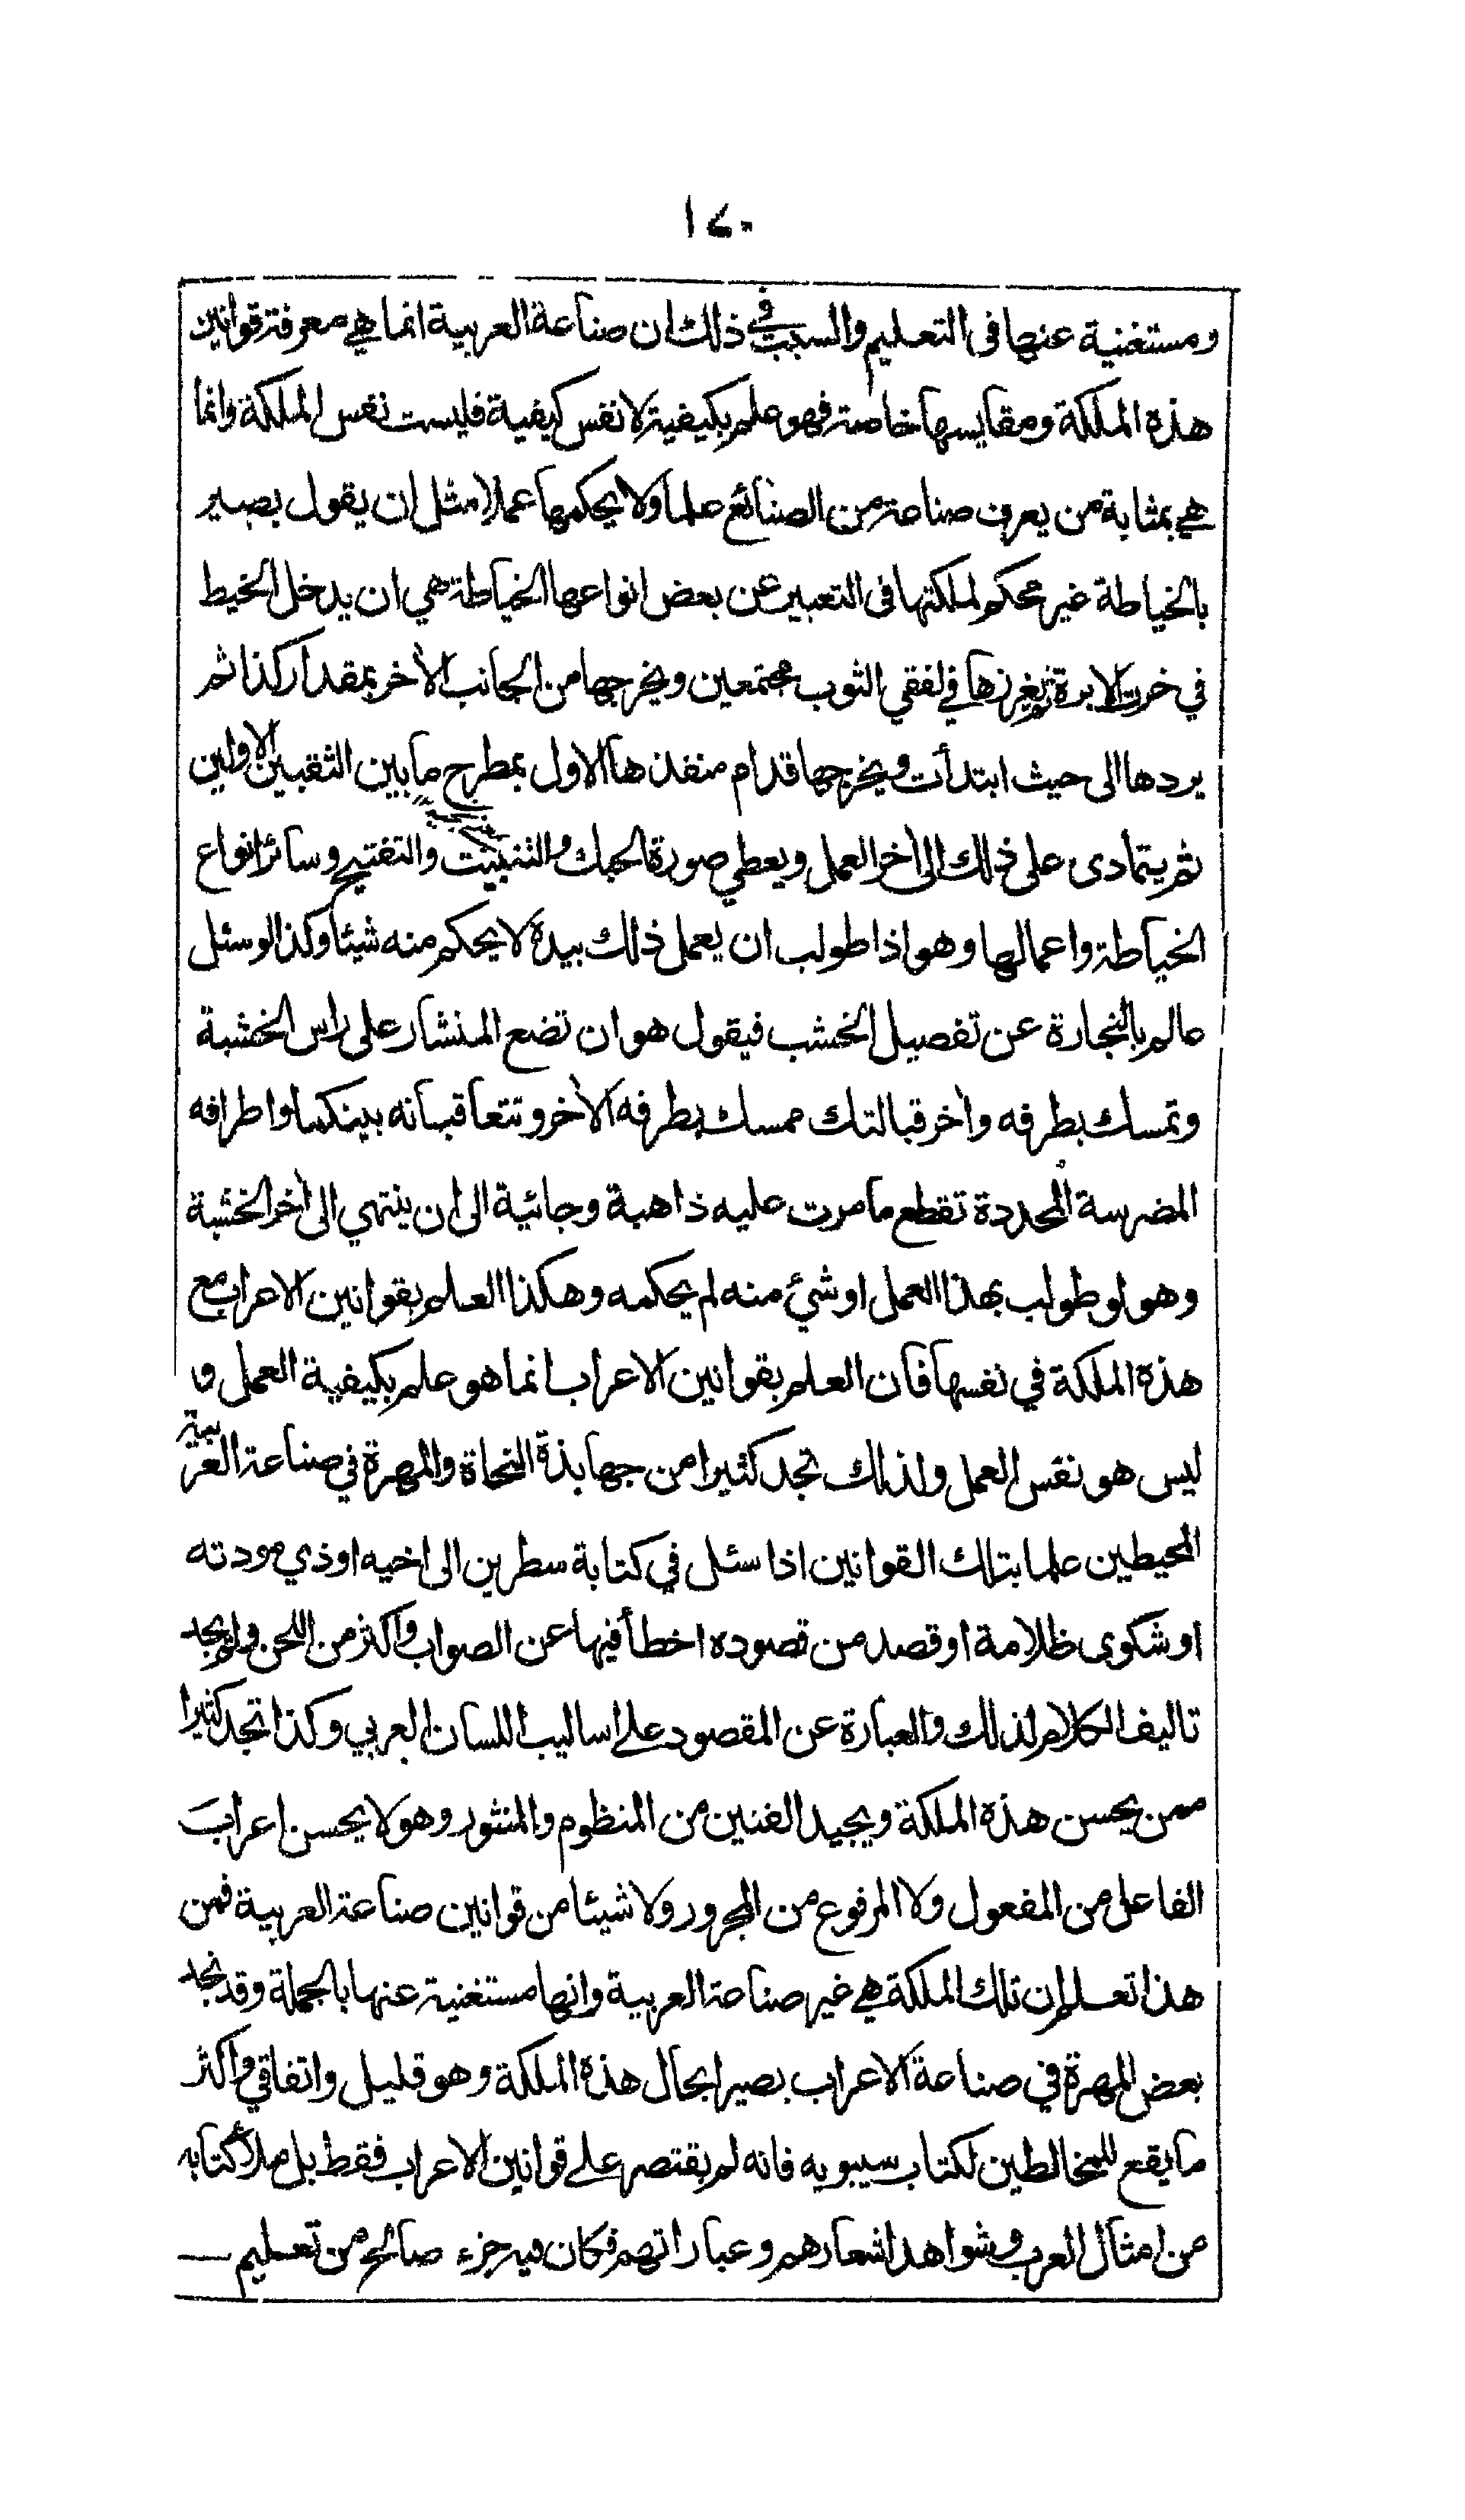 ١٤٠
ومستغنية عنها في التعليم والسبب في ذلك ان صناعة العربية انما هي معرفة قوانين
هذه الملكة ومقايسها خاصة فهو علم بكيفية لا نفس كيفية فليست نفس الملكة وانما
هي بمثابة من يعرف صناعة من الصنائع علما ولا يحكمها عملا مثل ان يقول بصير
بالخياطة غير محكم لملكتها في التعبير عن بعض انواعها الخياطة هي ان يدخل الخيط
في خرت الابرة ثم يغرزها في لفقي الثوب مجتمعين ويخرجها من الجانب الآخر بمقدار كذا ثم
يردها الى حيث ابتدأت ويخرجها قدام منفذها الاول بمطرح ما بين الثقبين الاولين
ثم يتمادى على ذلك الى آخر العمل ويعطي صورة الحبك والتنبيت والتفتيح وسائر انواع
الخياطة واعمالها وهو اذا طولب ان يعمل ذلك بيده لا يحكم منه شيئا وكذا لو سئل
عالم بالنجارة عن تفصيل الخشب فيقول هو ان تضع المنشار على راس الخشبة
وتمسك بطرفه وآخر قبالتك ممسك بطرفه الآخر وتتعاقبانه بينكما واطرافه
المضرسة المحددة تقطع ما مرت عليه ذاهبة وجائية الى ان ينتهي الى آخر الخشبة
وهو لو طولب بهذا العمل او شيء منه لم يحكمه وهكذا العلم بقوانين الاعراب مع
هذه الملكة في نفسها فان العلم بقوانين الاعراب انما هو علم بكيفية العمل و
ليس هو نفس العمل ولذلك تجد كثيرا من جهابذة النحاة والمهرة في صناعة العربية
المحيطين علما بتلك القوانين اذا سئل في كتابة سطرين الى اخيه او ذي مودته
او شكوى ظلامة او قصد من قصوده اخطأ فيها عن الصواب واكثر من اللحن ولم يجد
تاليف الكلام لذلك والعبارة عن المقصود على اساليب اللسان العربي وكذا تجد كثيرا
ممن يحسن هذه الملكة ويجيد الفنين من المنظوم والمنثور وهو لا يحسن اعراب
الفاعل من المفعول ولا المرفوع من المجرور ولا شيئا من قوانين صناعة العربية فمن
هذا تعلم ان تلك الملكة هي غير صناعة العربية وانها مستغنية عنها بالجملة وقد نجد
بعض المهرة في صناعة الاعراب بصيرا بحال هذه الملكة وهو قليل واتفاقي واكثر
ما يقع للمخالطين لكتاب سيبويه فانه لم يقتصر على قوانين الاعراب فقط بل ملأ كتابه
من امثال العرب وشواهد اشعارهم وعباراتهم فكان فيه جزء صالح من تعليم